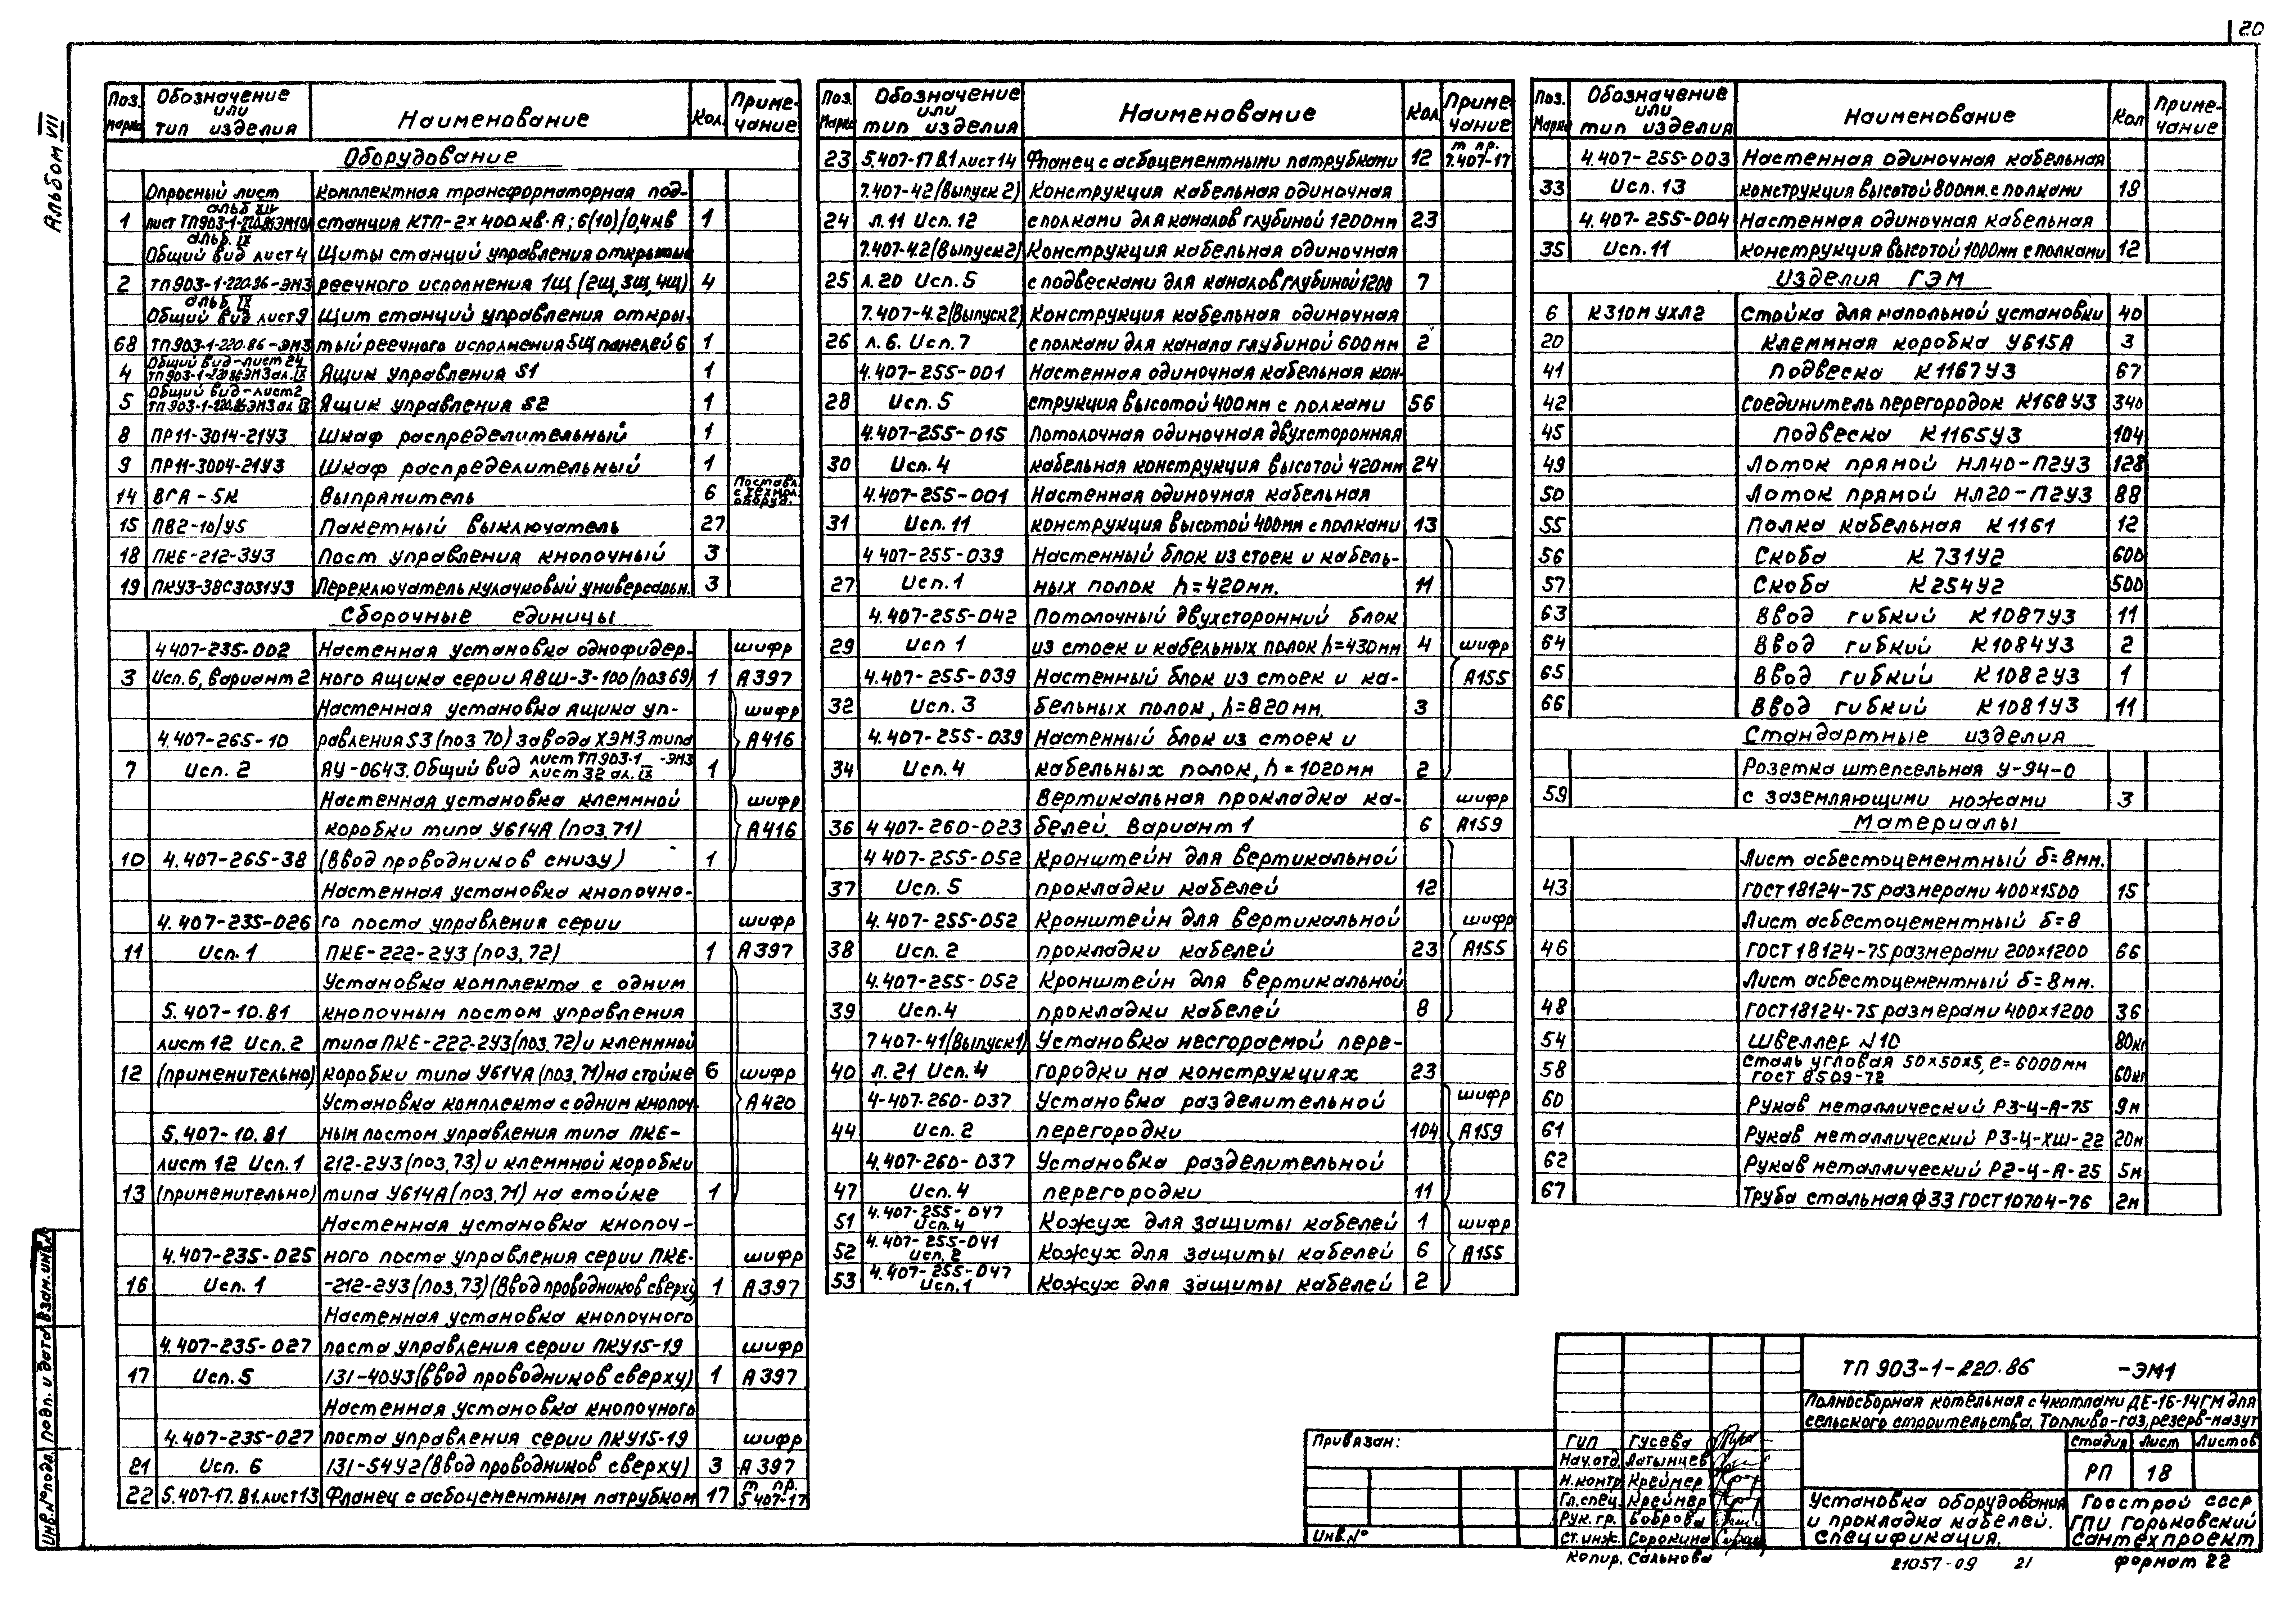 20
Альбом VII
Поз. Марка Обозначение или тип изделия Наименование Кол. Примечание
Оборудование
Опросный лист Комплектная трансформаторная под-
альб XIV
1 станция КТП-2×400кв·А; 6(10)/0,4кв 1
альб. IX
Общий вид лист 4 Щиты станций управления открытые
2 ТП903-1-220.86-ЭМ3 реечного исполнения 1щ (2щ, 3щ, 4щ) 4
альб IX
Общий вид лист 9 Щит станций управления откры-
68 ТП903-1-220.86-ЭМ3 тый реечного исполнения 5щ панелей 6 1
Общий вид-лист 24
4 ТП903-1-220.86ЭМ3 ал. IX Ящик управления S1 1
Общий вид-лист 2
5 ТП903-1-220.86ЭМ3 ал IX Ящик управления S2 1
8 ПР11-3014-21У3 Шкаф распределительный 1
9 ПР11-3004-21У3 Шкаф распределительный 1
14 ВГА-5К Выпрямитель 6 Поставл. с технол. оборуд.
15 ПВ2-10/У5 Пакетный выключатель 27
18 ПКЕ-212-3У3 Пост управления кнопочный 3
19 ПКУ3-38С3031У3 Переключатель кулачковый универсальн. 3
Сборочные единицы
4407-235-002 Настенная установка однофидер- шифр
3 Исп. 6, вариант 2 ного ящика серии ЯВШ-3-100 (поз 69) 1 А397
Настенная установка ящика уп- шифр
4.407-265-10 равления S3 (поз 70) завода ХЭМЗ типа А416
7 Исп. 2 ЯУ-0643. Общий вид лист ТП903-1 -ЭМ3 лист 32 ал. IX 1
Настенная установка клеммной шифр
коробки типа У614А (поз. 71) А416
10 4.407-265-38 (Ввод проводников снизу) 1
Настенная установка кнопочно-
4.407-235-026 го поста управления серии шифр
11 Исп. 1 ПКЕ-222-2У3 (поз. 72) 1 А397
Установка комплекта с одним
5.407-10.В1 кнопочным постом управления
лист 12 Исп. 2 типа ПКЕ-222-2У3 (поз. 72) и клеммной
12 (применительно) коробки типа У614А (поз. 71) на стойке 6 шифр
Установка комплекта с одним кнопоч- А420
5.407-10.В1 ным постом управления типа ПКЕ-
лист 12 Исп. 1 212-2У3 (поз. 73) и клеммной коробки
13 (применительно) типа У614А (поз. 71) на стойке 1
Настенная установка кнопоч-
4.407-235-025 ного поста управления серии ПКЕ- шифр
16 Исп. 1 -212-2У3 (поз. 73) (Ввод проводников сверху) 1 А397
Настенная установка кнопочного
4.407-235-027 поста управления серии ПКУ15-19 шифр
17 Исп. 5 131-40У3 (Ввод проводников сверху) 1 А397
Настенная установка кнопочного
4.407-235-027 поста управления серии ПКУ15-19 шифр
21 Исп. 6 131-54У2 (Ввод проводников сверху) 3 А397
22 5.407-17.В1.лист13 Фланец с асбоцементным патрубком 17 т пр. 5.407-17
Поз. Марка Обозначение или тип изделия Наименование Кол Примечание
23 5.407-17В.1 лист 14 Фланец с асбоцементными патрубками 12 т пр. 7.407-17
7.407-42 (Выпуск 2) Конструкция кабельная одиночная
24 л.11 Исп. 12 с полками для каналов глубиной 1200мм 23
7.407-4.2 (Выпуск 2) Конструкция кабельная одиночная
25 л.20 Исп. 5 с подвесками для каналов глубиной 1200 7
7.407-4.2 (Выпуск 2) Конструкция кабельная одиночная
26 л. 6. Исп. 7 с полками для канала глубиной 600мм 2
4.407-255-001 Настенная одиночная кабельная кон-
28 Исп. 5 струкция высотой 400мм с полками 56
4.407-255-015 Потолочная одиночная двухсторонняя
30 Исп. 4 кабельная конструкция высотой 420мм 24
4.407-255-001 Настенная одиночная кабельная
31 Исп. 11 конструкция высотой 400мм с полками 13
4 407-255-039 Настенный блок из стоек и кабель-
27 Исп. 1 ных полок h=420мм. 11
4.407-255-042 Потолочный двухсторонний блок
29 Исп 1 из стоек и кабельных полок h=430мм 4 шифр
4.407-255-039 Настенный блок из стоек и ка- А155
32 Исп. 3 бельных полок, h=820мм. 3
4.407-255-039 Настенный блок из стоек и
34 Исп. 4 кабельных полок, h=1020мм 2
Вертикальная прокладка ка- шифр
36 4 407-260-023 белей. Вариант 1 6 А159
4 407-255-052 Кронштейн для вертикальной
37 Исп. 5 прокладки кабелей 12
4.407-255-052 Кронштейн для вертикальной шифр
38 Исп. 2 прокладки кабелей 23 А155
4.407-255-052 Кронштейн для вертикальной
39 Исп. 4 прокладки кабелей 8
7 407-41 (Выпуск 1) Установка несгораемой пере-
40 л. 21 Исп. 4 городки на конструкциях 23
4-407-260-037 Установка разделительной шифр
44 Исп. 2 перегородки 104 А159
4.407-260-037 Установка разделительной
47 Исп. 4 перегородки 11
51 4.407-255-047 Исп. 4 Кожух для защиты кабелей 1 шифр
52 4.407-255-041 Исп. 2 Кожух для защиты кабелей 6 А155
53 4.407-255-047 Исп. 1 Кожух для защиты кабелей 2
Поз. Марка Обозначение или тип изделия Наименование Кол Примечание
4.407-255-003 Настенная одиночная кабельная
33 Исп. 13 конструкция высотой 800мм. с полками 18
4.407-255-004 Настенная одиночная кабельная
35 Исп. 11 конструкция высотой 1000мм с полками 12
Изделия ГЭМ
6 К310М УХЛ2 Стойка для напольной установки 40
20 Клеммная коробка У615А 3
41 Подвеска К1167У3 67
42 Соединитель перегородок К168У3 340
45 Подвеска К1165У3 104
49 Лоток прямой НЛ40-П2У3 128
50 Лоток прямой НЛ20-П2У3 88
55 Полка кабельная К1161 12
56 Скоба К731У2 600
57 Скоба К254У2 500
63 Ввод гибкий К1087У3 11
64 Ввод гибкий К1084У3 2
65 Ввод гибкий К1082У3 1
66 Ввод гибкий К1081У3 11
Стандартные изделия
Розетка штепсельная У-94-0
59 с заземляющими ножами 3
Материалы
Лист асбестоцементный δ=8мм.
43 ГОСТ 18124-75 размерами 400×1500 15
Лист асбестоцементный δ=8
46 ГОСТ 18124-75 размерами 200×1200 66
Лист асбестоцементный δ=8мм.
48 ГОСТ 18124-75 размерами 400×1200 36
54 Швеллер N10 80кг
58 Сталь угловая 50×50×5, ℓ=6000мм ГОСТ 8509-72 60кг
60 Рукав металлический Р3-Ц-А-75 9м
61 Рукав металлический Р3-Ц-ХШ-22 20м
62 Рукав металлический Р2-Ц-А-25 5м
67 Труба стальная ф33 ГОСТ 10704-76 2м
Инв.№подл. Подп. и дата Взам.инв.№
Привязан:
Инв.№
ГИП Гусева
Нач.отд. Латынцев
Н.контр Креймер
Гл.спец. Креймер
Рук. гр. Боброва
Ст.инж. Сорокина
Копир. Сальнова
ТП 903-1-220.86 -ЭМ1
Полносборная котельная с 4 котлами ДЕ-16-14ГМ для
сельского строительства. Топливо-газ, резерв-мазут
Стадия Лист Листов
РП 18
Установка оборудования и прокладка кабелей. Спецификация.
Госстрой СССР ГПИ Горьковский Сантехпроект
21057-09 21 формат 22